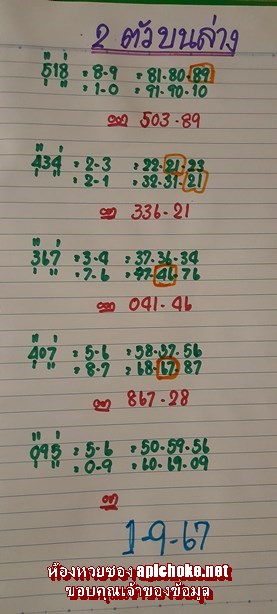 2 ตัวบนล่าง
518 = 8-9 = 81-80-89
= 1-0 = 91-90-10
503-89
434 = 2-3 = 22-21-23
= 2-1 = 32-31-21
336-21
367 = 3-4 = 37-36-34
= 7-6 = 47-46-76
041-46
407 = 5-6 = 58-57-56
= 8-7 = 68-67-87
867-28
095 = 5-6 = 50-59-56
= 0-9 = 60-69-09
1-9-67
ห้องหวยซอง apichoke.net
ขอบคุณเจ้าของข้อมูล